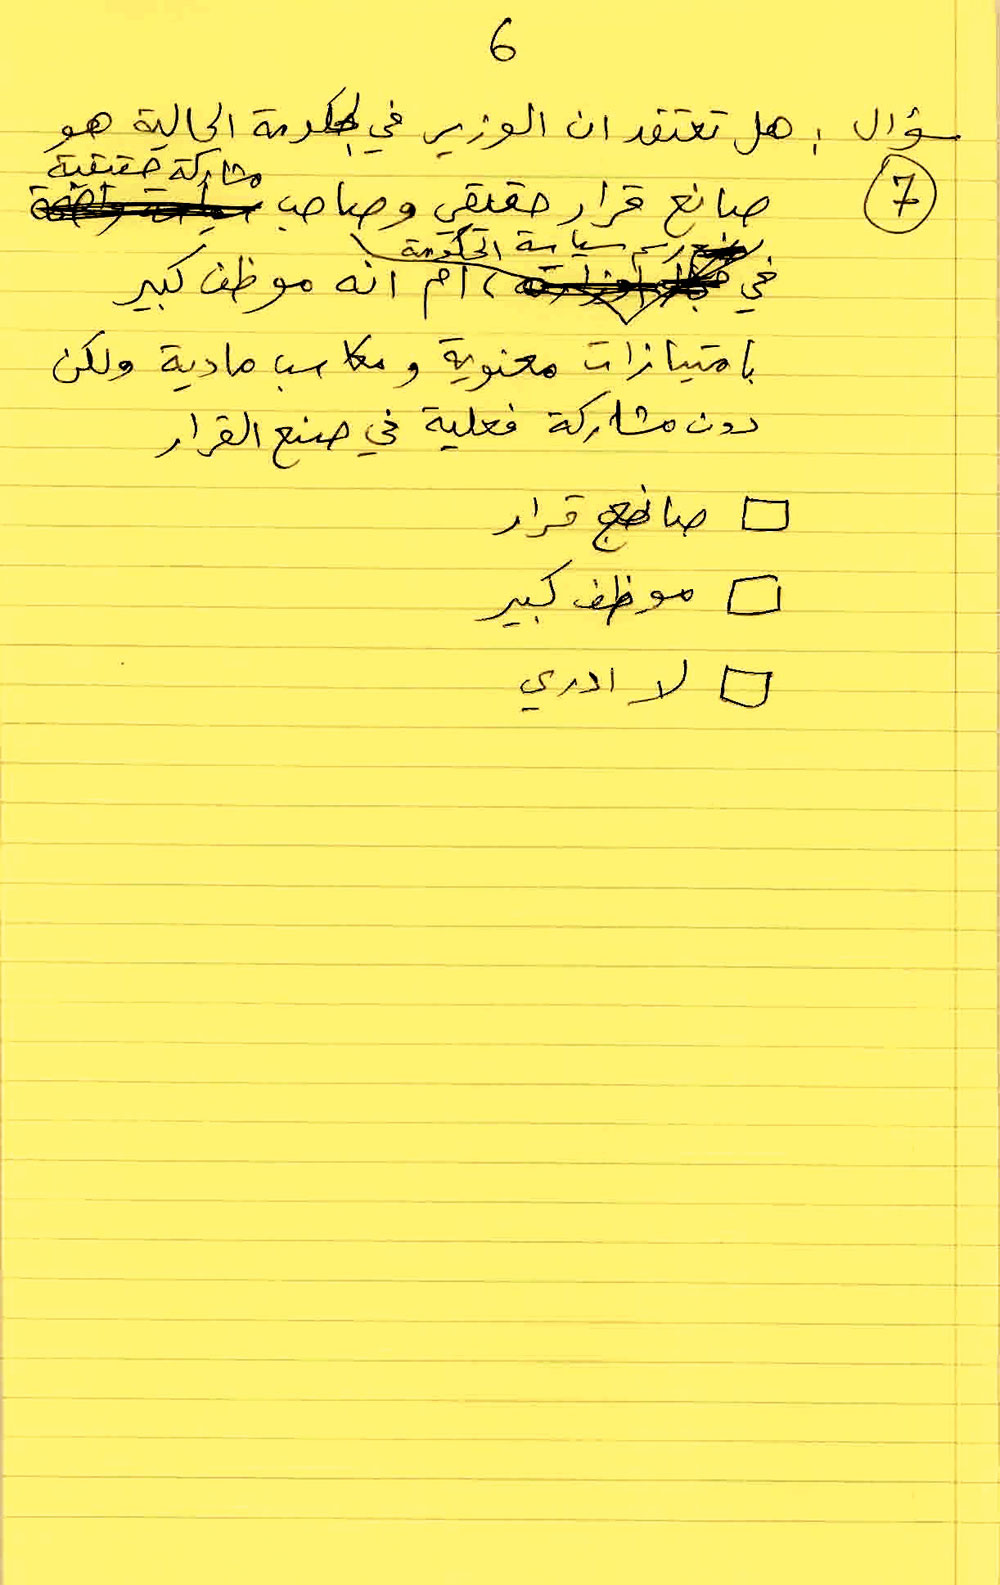 6
سؤال : هل تعتقد ان الوزير في الحكومة الحالية هو
مشاركة حقيقية
7 صانع قرار حقيقي وصاحب
رسم سياسة الحكومة
في ، أم انه موظف كبير
بامتيازات معنوية ومكاسب مادية ولكن
دون مشاركة فعلية في صنع القرار
☐ صانع قرار
☐ موظف كبير
☐ لا ادري